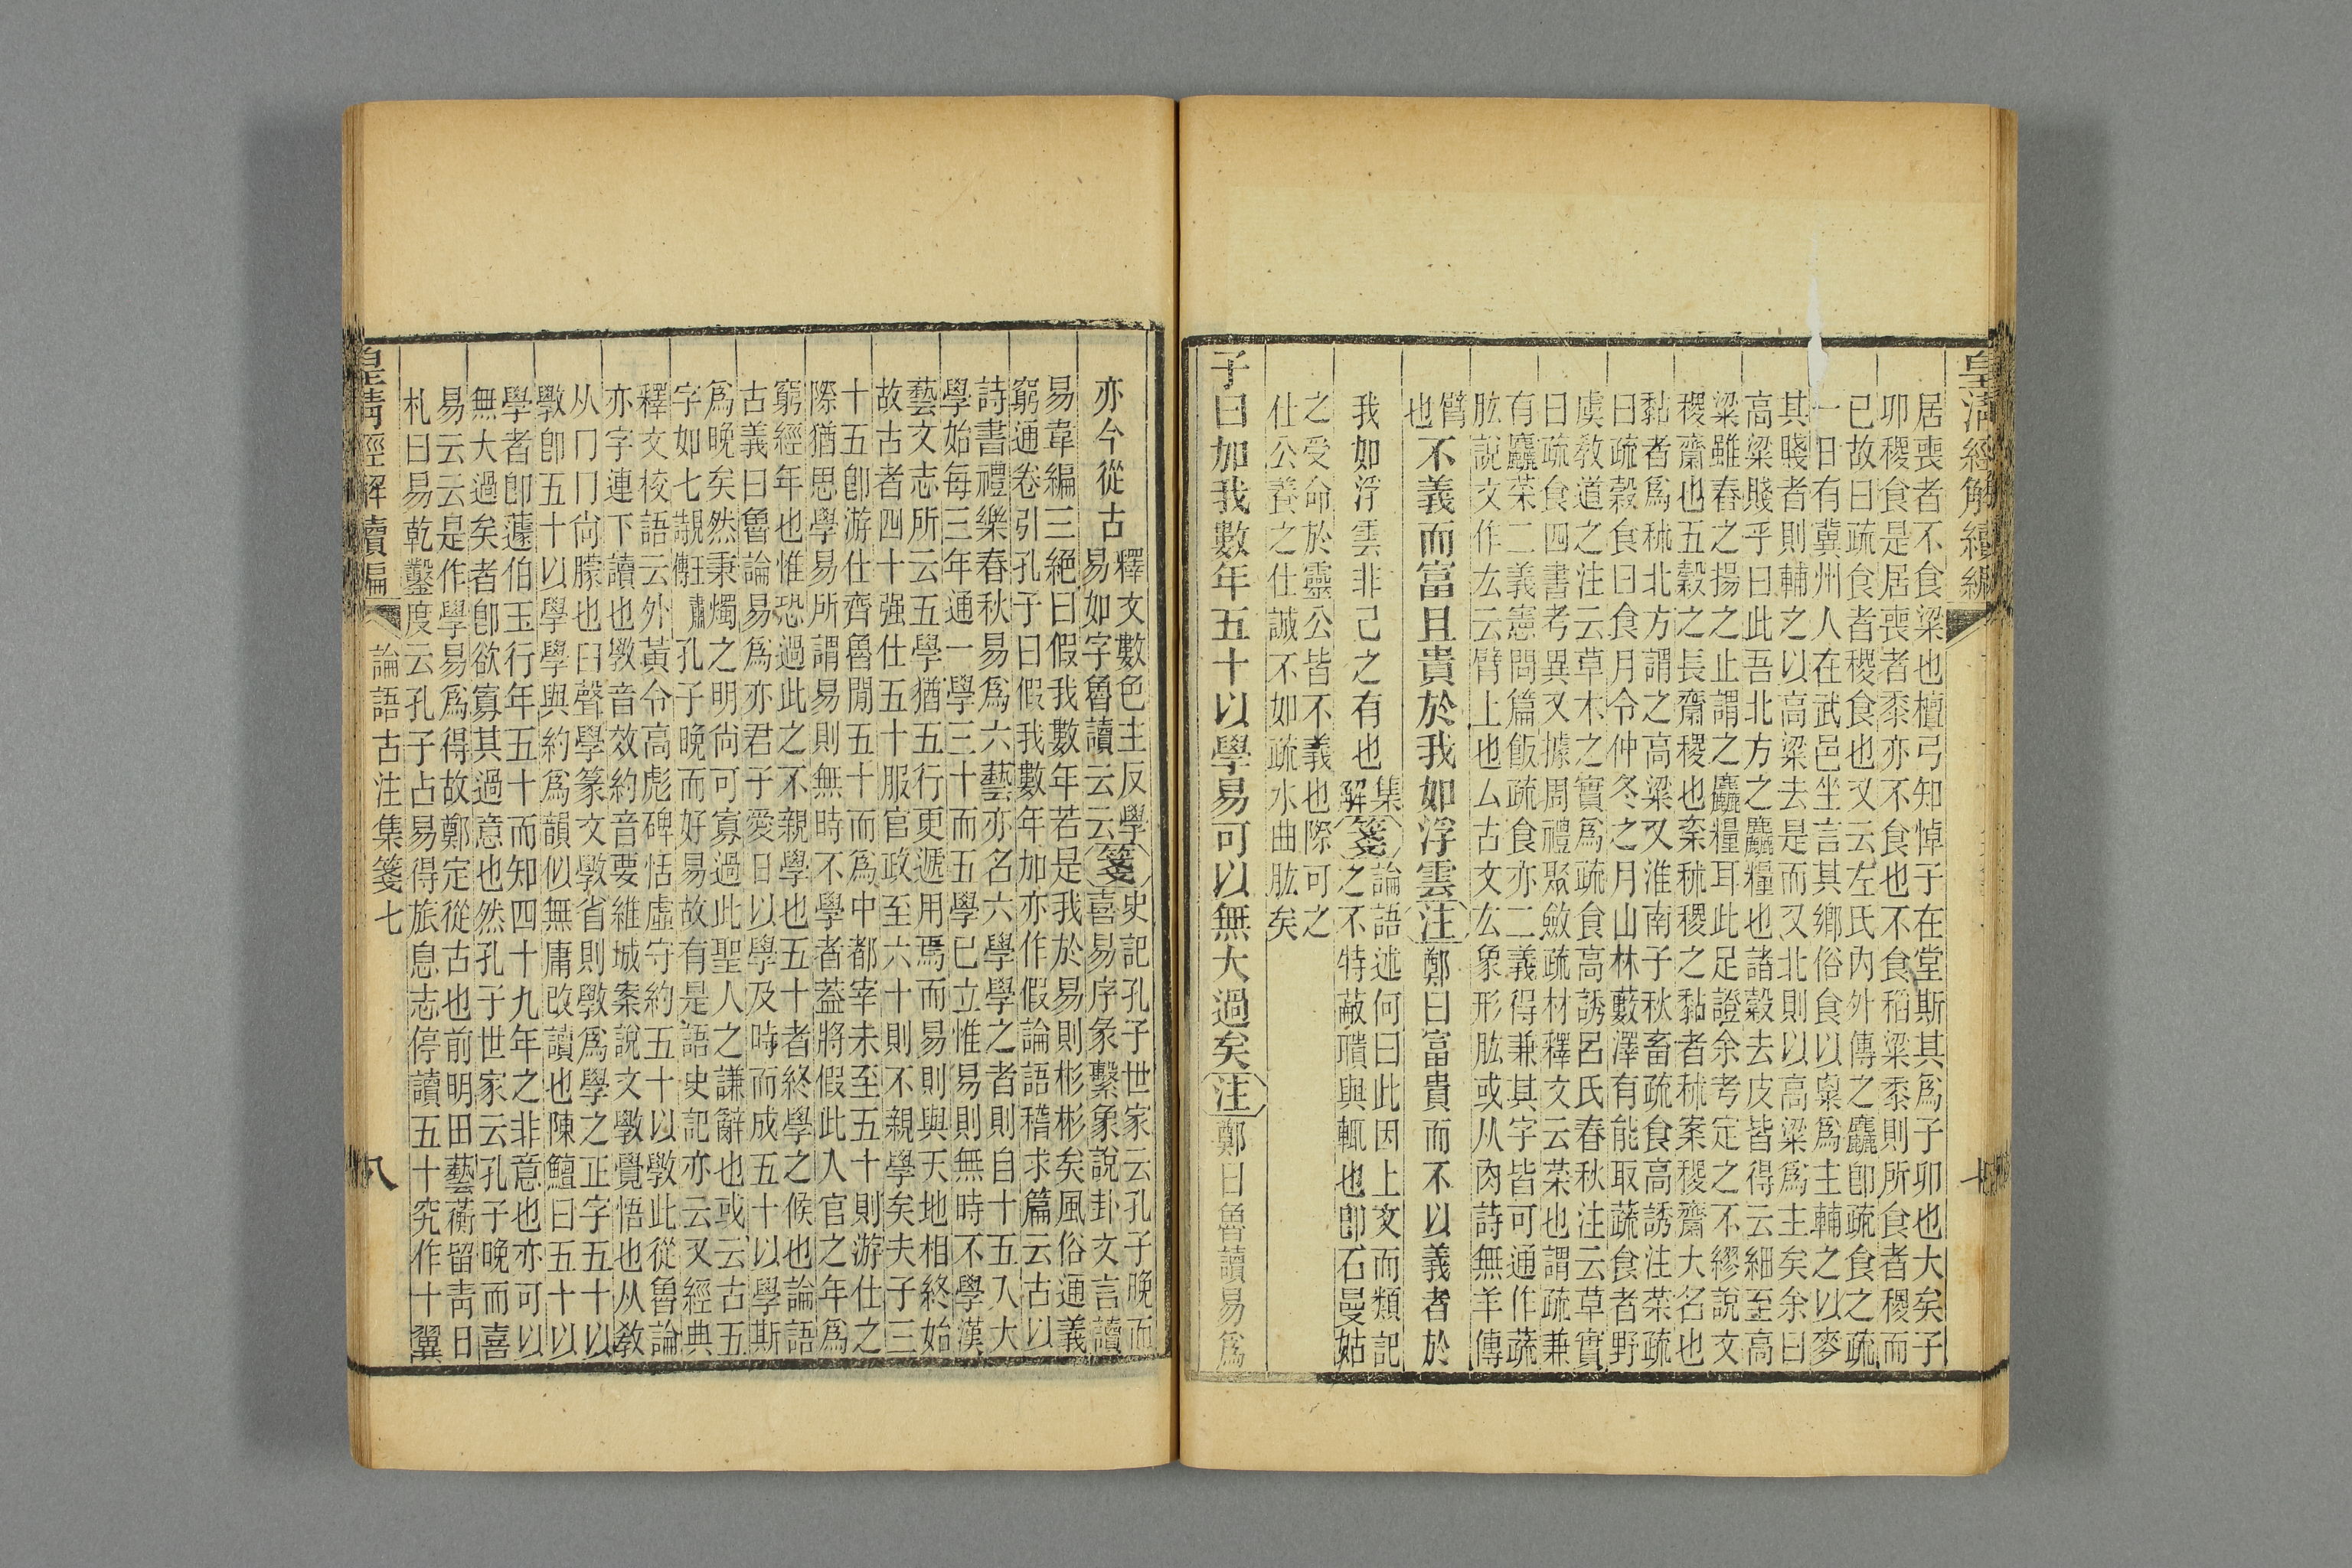 皇清經解續編
居喪者不食粱也檀弓知悼子在堂斯其爲子卯也大矣子
卯稷食是居喪者黍亦不食也不食稻粱黍則所食者稷而
已故曰疏食者稷食也又云左氏內外傳之麤卽疏食之疏
一日有冀州人在武邑坐言其鄉俗食以稟爲主輔之以麥
其賤者則輔之以高粱去是而又北則以高粱爲主矣余曰
高粱賤乎曰此吾北方之麤糧也諸穀去皮皆得云細至高
粱雖舂之揚之止謂之麤糧耳此足證余考定之不繆說文
稷齋也五穀之長齋稷也粢秫稷之黏者秫案稷齋大名也
黏者爲秫北方謂之高粱又淮南子秋畜疏食高誘注菜疏
曰疏穀食曰食月令仲冬之月山林藪澤有能取蔬食者野
虞敎道之注云草木之實爲疏食高誘呂氏春秋注云草實
曰疏食四書考異又據周禮聚斂疏材釋文云菜也謂疏兼
有麤菜二義憲問篇飯疏食亦二義得兼其字皆可通作蔬
肱說文作厷云臂上也厶古文厷象形肱或从肉詩無羊傳
臂
也
不義而富且貴於我如浮雲注鄭曰富貴而不以義者於
我如浮雲非己之有也
集
解
箋論語述何曰此因上文而類記
之不特蔽聵與輒也卽石曼姑
之受命於靈公皆不義也際可之
仕公養之仕誠不如疏水曲肱矣
子曰加我數年五十以學易可以無大過矣注鄭曰魯讀易爲
亦今從古
釋文數色主反學
易如字魯讀云云
箋史記孔子世家云孔子晚而
喜易序彖繫象說卦文言讀
易韋編三絕曰假我數年若是我於易則彬彬矣風俗通義
窮通卷引孔子曰假我數年加亦作假論語稽求篇云古以
詩書禮樂春秋易爲六藝亦名六學學之者則自十五入大
學始每三年通一學三十而五學已立惟易則無時不學漢
藝文志所云五學猶五行更遞用焉而易則與天地相終始
故古者四十强仕五十服官政至六十則不親學矣夫子三
十五卽游仕齊魯閒五十而爲中都宰未至五十則游仕之
際猶思學易所謂易則無時不學者蓋將假此入官之年爲
窮經年也惟恐過此之不親學也五十者終學之候也論語
古義曰魯論易爲亦君子愛日以學及時而成五十以學斯
爲晚矣然秉燭之明尙可寡過此聖人之謙辭也或云古五
字如七孔子晚而好易故有是語史記亦云又經典
釋文校語云外黃令高彪碑恬虛守約五十以斆此從魯論
亦字連下讀也斆音效約音要維城案說文斆覺悟也从敎
从冂冂尙朦也臼聲學篆文斆省則斆爲學之正字五十以
斆卽五十以學學與約爲韻似無庸改讀也陳鱣曰五十以
學者卽蘧伯玉行年五十而知四十九年之非意也亦可以
無大過矣者卽欲寡其過意也然孔子世家云孔子晚而喜
易云云是作學易爲得故鄭定從古也前明田藝蘅留靑日
札曰易乾鑿度云孔子占易得旅息志停讀五十究作十翼
皇淸經解續編
論語古注集箋七
八